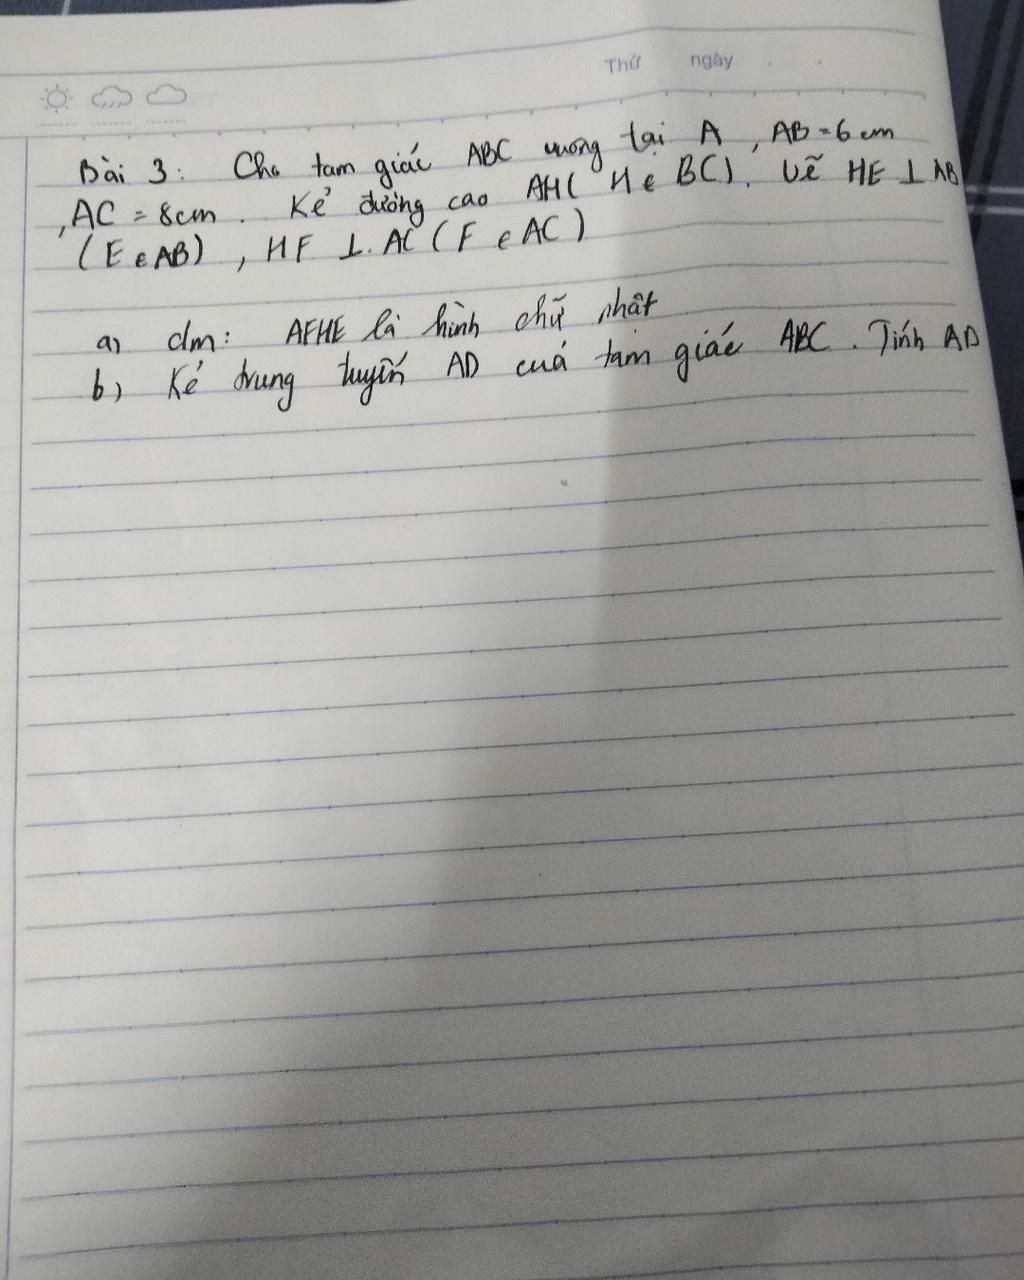 Thứ ngày . .
Bài 3: Cho tam giác ABC vuông tại A, AB = 6 cm
, AC = 8cm. Kẻ đường cao AH ( H ∈ BC). Vẽ HE ⊥ AB
( E ∈ AB) , HF ⊥. AC ( F ∈ AC )
a) cm: AFHE là hình chữ nhật
b) Kẻ trung tuyến AD cuả tam giác ABC. Tính AD